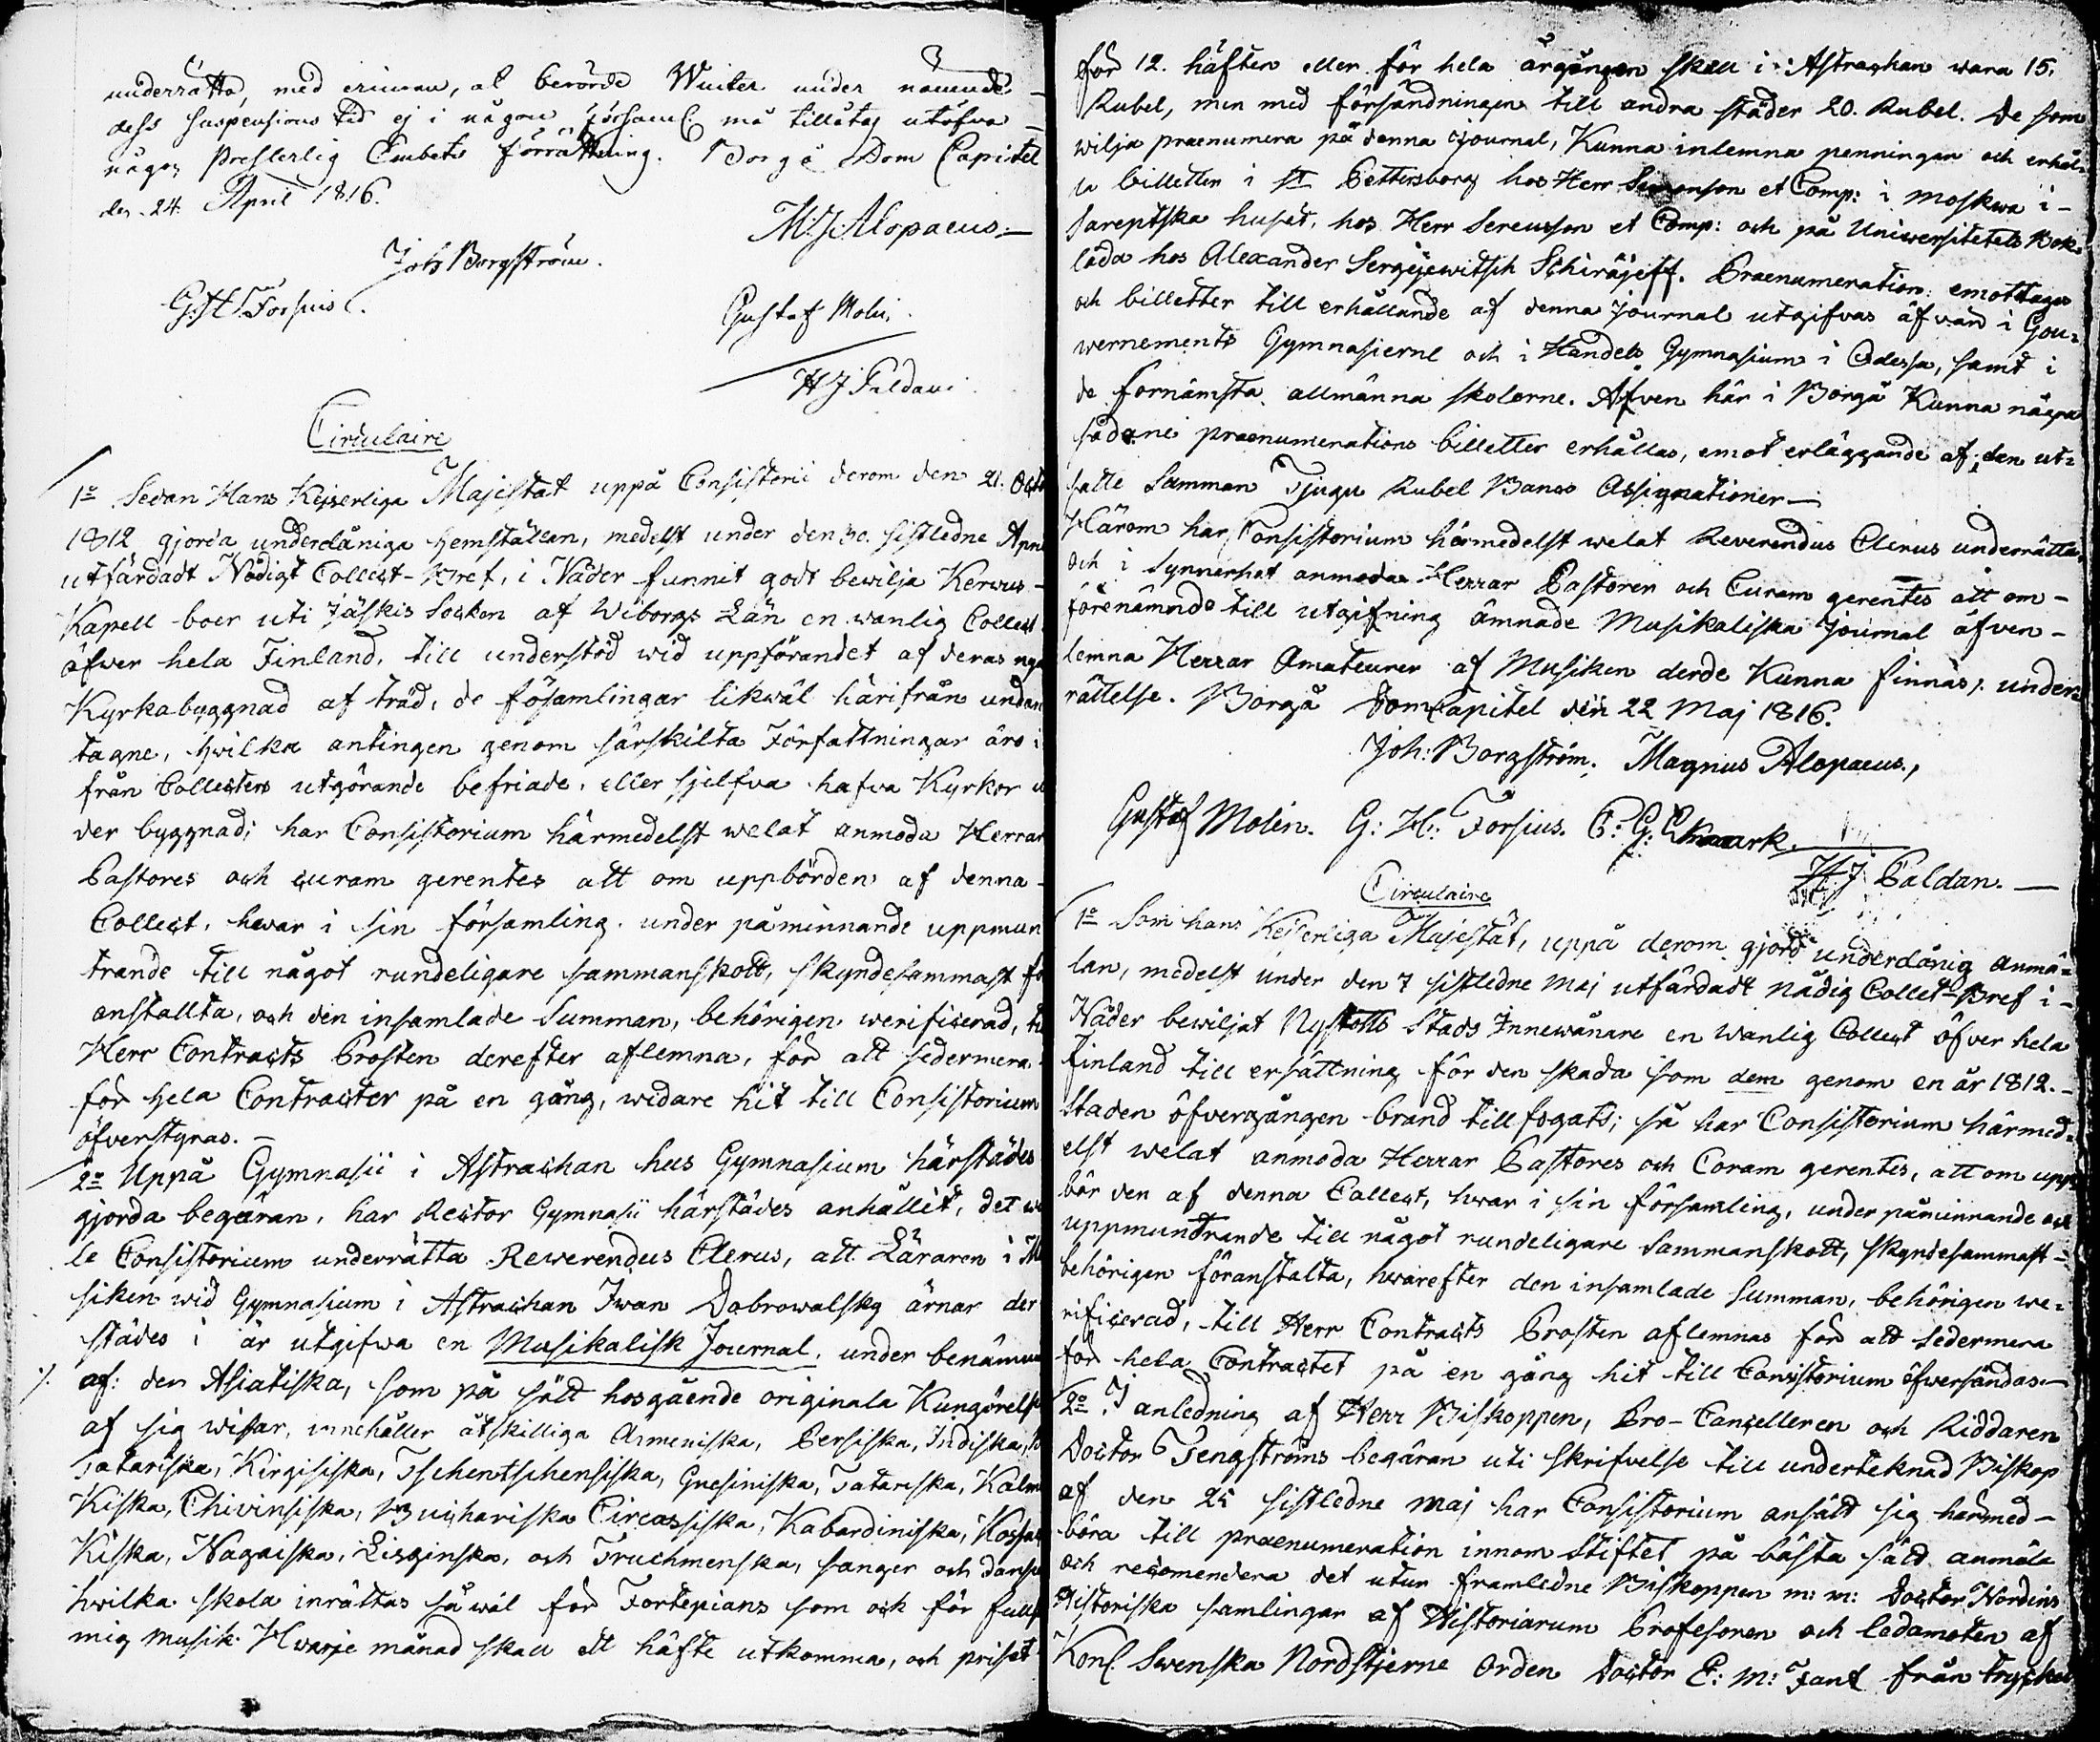 underrätta, med eriuran, at berörde Winter under nämnde
dess suspensions tid ej i någon församl. må tillåtas utöfva
någon Presterlig Embets förrättning. Borgå Dom Capitel
den 24. April 1816.
M: J Alopaeus.
Joh Borgström.
G. H. Forsius.
Gustaf Molin.
H J Paldani
Circulaire
1o Sedan Hans Kejserliga Majestät uppå Consistorii derom den 21. Octo
1812 gjorda underdåniga hemställan, medelst under den 30. sistledne April
utfärdadt Nådigt Collect-Bref, i Nåder funnit godt bewilja Kerwus-
Kapell boer uti Jäskis Socken af Wiborgs Län en wanlig Collect
öfwer hela Finland, till understöd wid uppförandet af deras nya
Kyrkabyggnad af träd, de församlingar likwäl härifrån undan
tagne, hwilka antingen genom särskilta Författningar äro i
från Collecters utgörande befriade, eller sjelfva hafva Kyrkor u
der byggnad; har Consistorium härmedelst welat anmoda Herrar
Pastores och curam gerentes att om uppbörden af denna-
Collect, hwar i sin församling, under påminnande uppmun
trande till något rundeligare sammanskott, skyndesammast fö
anstallta, och den insamlade Summan, behörigen werificerad, ti
Herr Contracts Prosten derefter aflemna, för att sedermera
för hela Contracter på en gång, widare hit till Consistorium
öfverstyras.-
2o Uppå Gymnasii i Astrachan hus Gymnasium härstädes
gjorda begäran, har Rector Gymnasii härstädes anhållit, det w
le Consistorium underrätta Rewerendus Clerus, att Läraren i M
siken wid Gymnasium i Astrachan Iwan Dobrowalsky ärnar der
städes i år utgifwa en Musikalisk Journal, under benämn
af: den Asiatiska, som på sätt hosgående originala Kungörelse
af sig wisar, innehåller åtskilliga Armeniska, Persiska, Indiska,
Tatariska, Kirgisiska, Tschentschensiska, Grusiniska, Tatariska, Kalm
Kiska, Chivinsiska, Buchariska Circassiska, Kabardiniska, Kossac
Kiska, Nagaiska, Lisginska, och Truchmenska, sanger och danser
hwilka skola inrättas så wäl för Fortepians som och för full
mig musik. Hvarje månad skall ett häfte utkomma, och priset
för 12. häften eller för hela årgången skall i Astrachan wara 15.
Rubel, men med försändningen till andra städer 20. Rubel. De som
wilja praenumera på denna Journal, Kunna inlemna penningar och erhål-
la billetter i St Pettersborg hos Herr Sewonson et Comp: i Moskwa i-
Sareptska huset, hos Herr Sereusson et Comp: och på Universitetets Bok
låda hos Alexander Sergejewitsch Schiräjeff. Praenumeration emottages
och billetter till erhållande af denna Journal utgifvas äfwen i Gou-
wernements Gymnasierne och i Handels Gymnasium i Odessa, samt i
de förnämsta allmänna skolorne. Äfven här i Borgå Kunna några
sådane praenumerations billetter erhållas, emot erläggande af den ut-
satte Summan Tjugu Rubel Banco Assignationer-
Härom har Consistorium härmedelst welat Reverendus Clerus underrätta,
och i Synnerhet anmoda Herrar Pastorer och Curam gerentes att om-
förenämnde till utgifning ämnade Musikaliska Journal äfven-
lemna Herrar Amateurer af Musiken derde Kunna finnas, under-
rättelse. Borgå DomCapitel den 22 Maj 1816.
Joh: Borgström. Magnus Alopaeus.,
Gustaf Molin. G: H: Forsius. C: G: Ekmark.
H J. Paldan.-
Circulaire
1o Som hans Kejserliga Majestät, uppå derom gjord underdånig anmä-
lan, medelst under den 7 sistledne Maj utfärdadt nådig Collet-Bref i-
Nåder bewiljat Nyslotts Stads Innewånare en wanlig Collect öfver hela
Finland till ersättning för den skada som dem genom en år 1812.-
Staden öfvergången brand tillfogats; så har Consistorium härmed-
elst welat anmoda Herrar Pastores och Coram gerentes, att om upp
bör den af denna Collect, hwar i sin församling, under påminnande och
uppmuntrande till något rundeligare Sammanskott, skyndesammast-
behörigen föranstalta, hwarefter den insamlade Summan, behörigen we-
rificerad, till Herr Contracts Prosten aflemnas för att sedermera
för hela Contractet på en gång hit till Consistorium öfwersändas.-
2o I anledning af Herr Biskoppen, Pro-Cancelleren och Riddaren
Doctor Tengströms begäran uti skrifvelse till undertecknad Biskop
af den 25 sistledne Maj har Consistorium ansätt sig härmed-
böra till praenumeration innom Stiftet på bästa sätt anmäla
och recomendera det utur framledne Biskoppen m: m: Doctor Nordins
Historiska samlingar af Historiarum Profesoren och ledamoten af
Konl. Swenska Nordstjerne Orden Doctor E: M: Fant från trycket